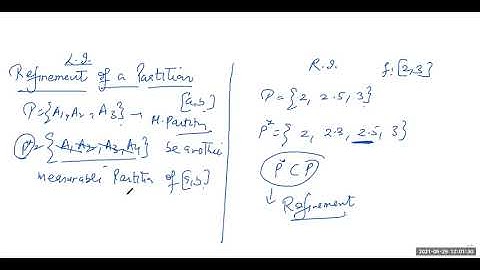 L.I.
Refinement of a Partition
P={A₁, A₂, A₃} → [a,b]
M. Partity
P*={A₁, A₂, A₃, A₄} be another
measurable Partition of [a,b]
R.I. f: [2,3]
P={2, 2.5, 3}
P*={2, 2.2, 2.5, 3}
P* ⊂ P
↓
Refinement
2021-05-25 12:01:30